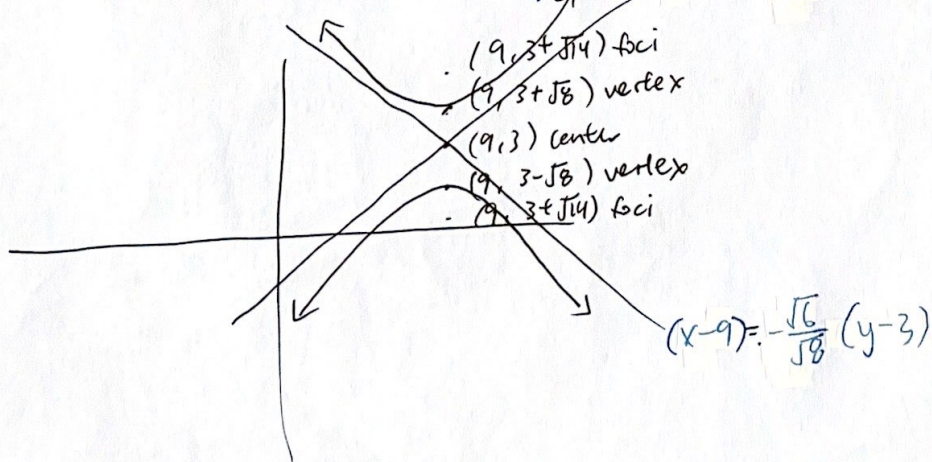 (9, 3+√14) foci
(9, 3+√8) vertex
(9, 3) center
(9, 3-√8) vertex
(9, 3+√14) foci
(x-9) = -√6/√8 (y-3)